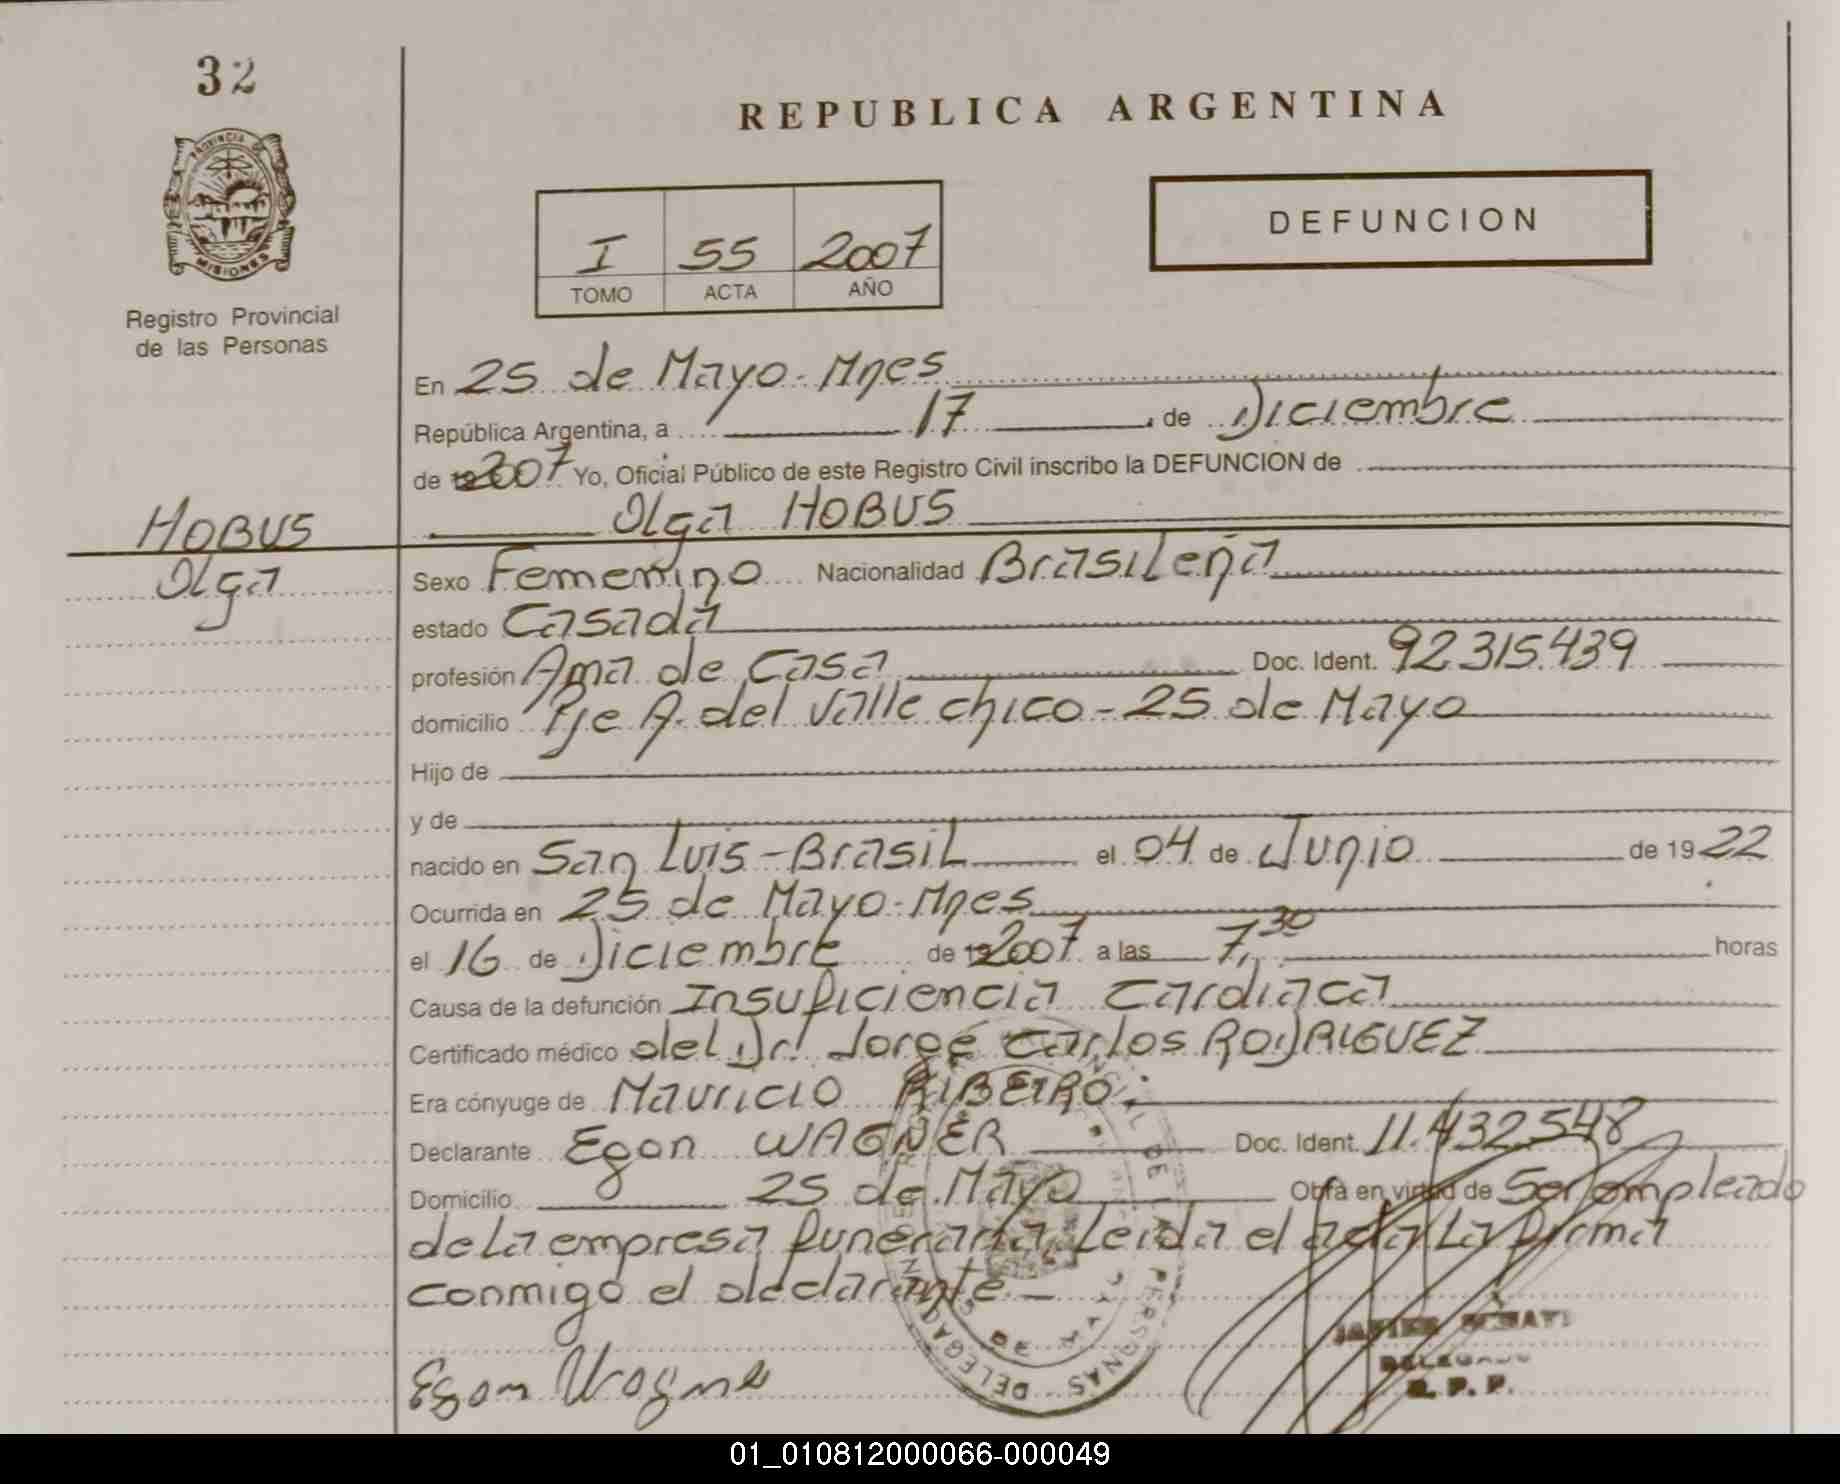 32
PROVINCIA DE
MISIONES
Registro Provincial
de las Personas
HOBUS
Olga
REPUBLICA ARGENTINA
I 55 2007
TOMO ACTA AÑO
DEFUNCION
En 25 de Mayo - Mnes
República Argentina, a 17, de Diciembre
de 2007 Yo, Oficial Público de este Registro Civil inscribo la DEFUNCION de
Olga HOBUS
Sexo Femenino Nacionalidad Brasileña
estado Casada
profesión Ama de Casa Doc. Ident. 92315.439
domicilio Pje A. del Valle chico - 25 de Mayo
Hijo de
y de
nacido en San Luis - Brasil el 04 de Junio de 1922
Ocurrida en 25 de Mayo - Mnes
el 16 de Diciembre de 2007 a las 7,30 horas
Causa de la defunción Insuficiencia Cardiaca
Certificado médico del Dr. Jorge Carlos RODRIGUEZ
Era cónyuge de Mauricio RIBEIRO.
Declarante Egon WAGNER Doc. Ident. 11.432548
Domicilio 25 de Mayo Obra en virtud de Ser empleado
de La empresa funeraria, Leida el acta La firma
conmigo el declarante. —
Egon Wagner
DELEGADO
R. P. P.
01_010812000066-000049